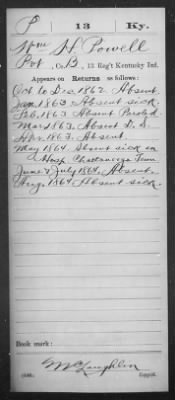 P 13 Ky.
Wm H Powell
Pvt, Co. B, 13 Reg't Kentucky Inf.
Appears on Returns as follows:
Oct to Dec 1862. Absent.
Jan 1863 Absent sick.
Feb. 1863 Absent Parold
Mar 1863. Absent D. S.
Apr 1863. Absent.
May 1864. Absent sick in
Hosp. Chattanooga Tenn
June & July 1864, Absent.
Aug. 1864 Absent sick.
Book mark:
McLaughlin
Copyist.